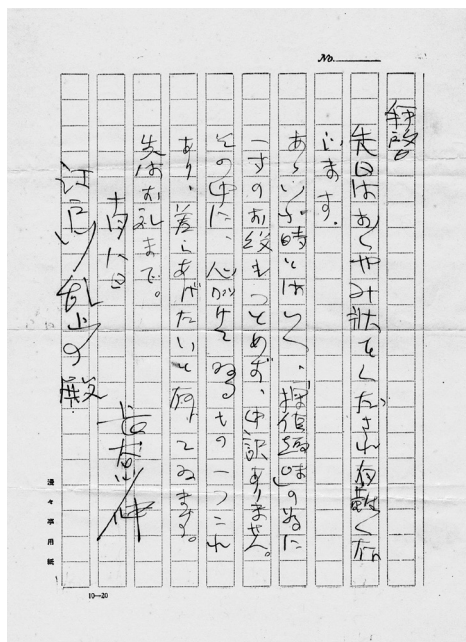 No.
拝啓
先日はおくやみ状をくだされ有難く存
じます。
あゝいふ時とはいへ、「探偵趣味」の為に
一寸のお役もつとめず、申訳ありません。
その中に、心がけてゐるもの一つこれ
あり、差しあげたいと存じてゐます。
先はお礼まで。
長谷川伸
江戸川乱歩殿
々亭用紙
10—20